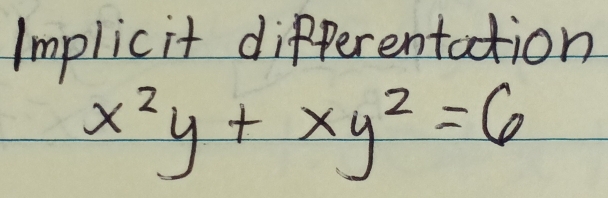 Implicit differentation
x²y + xy² = 6